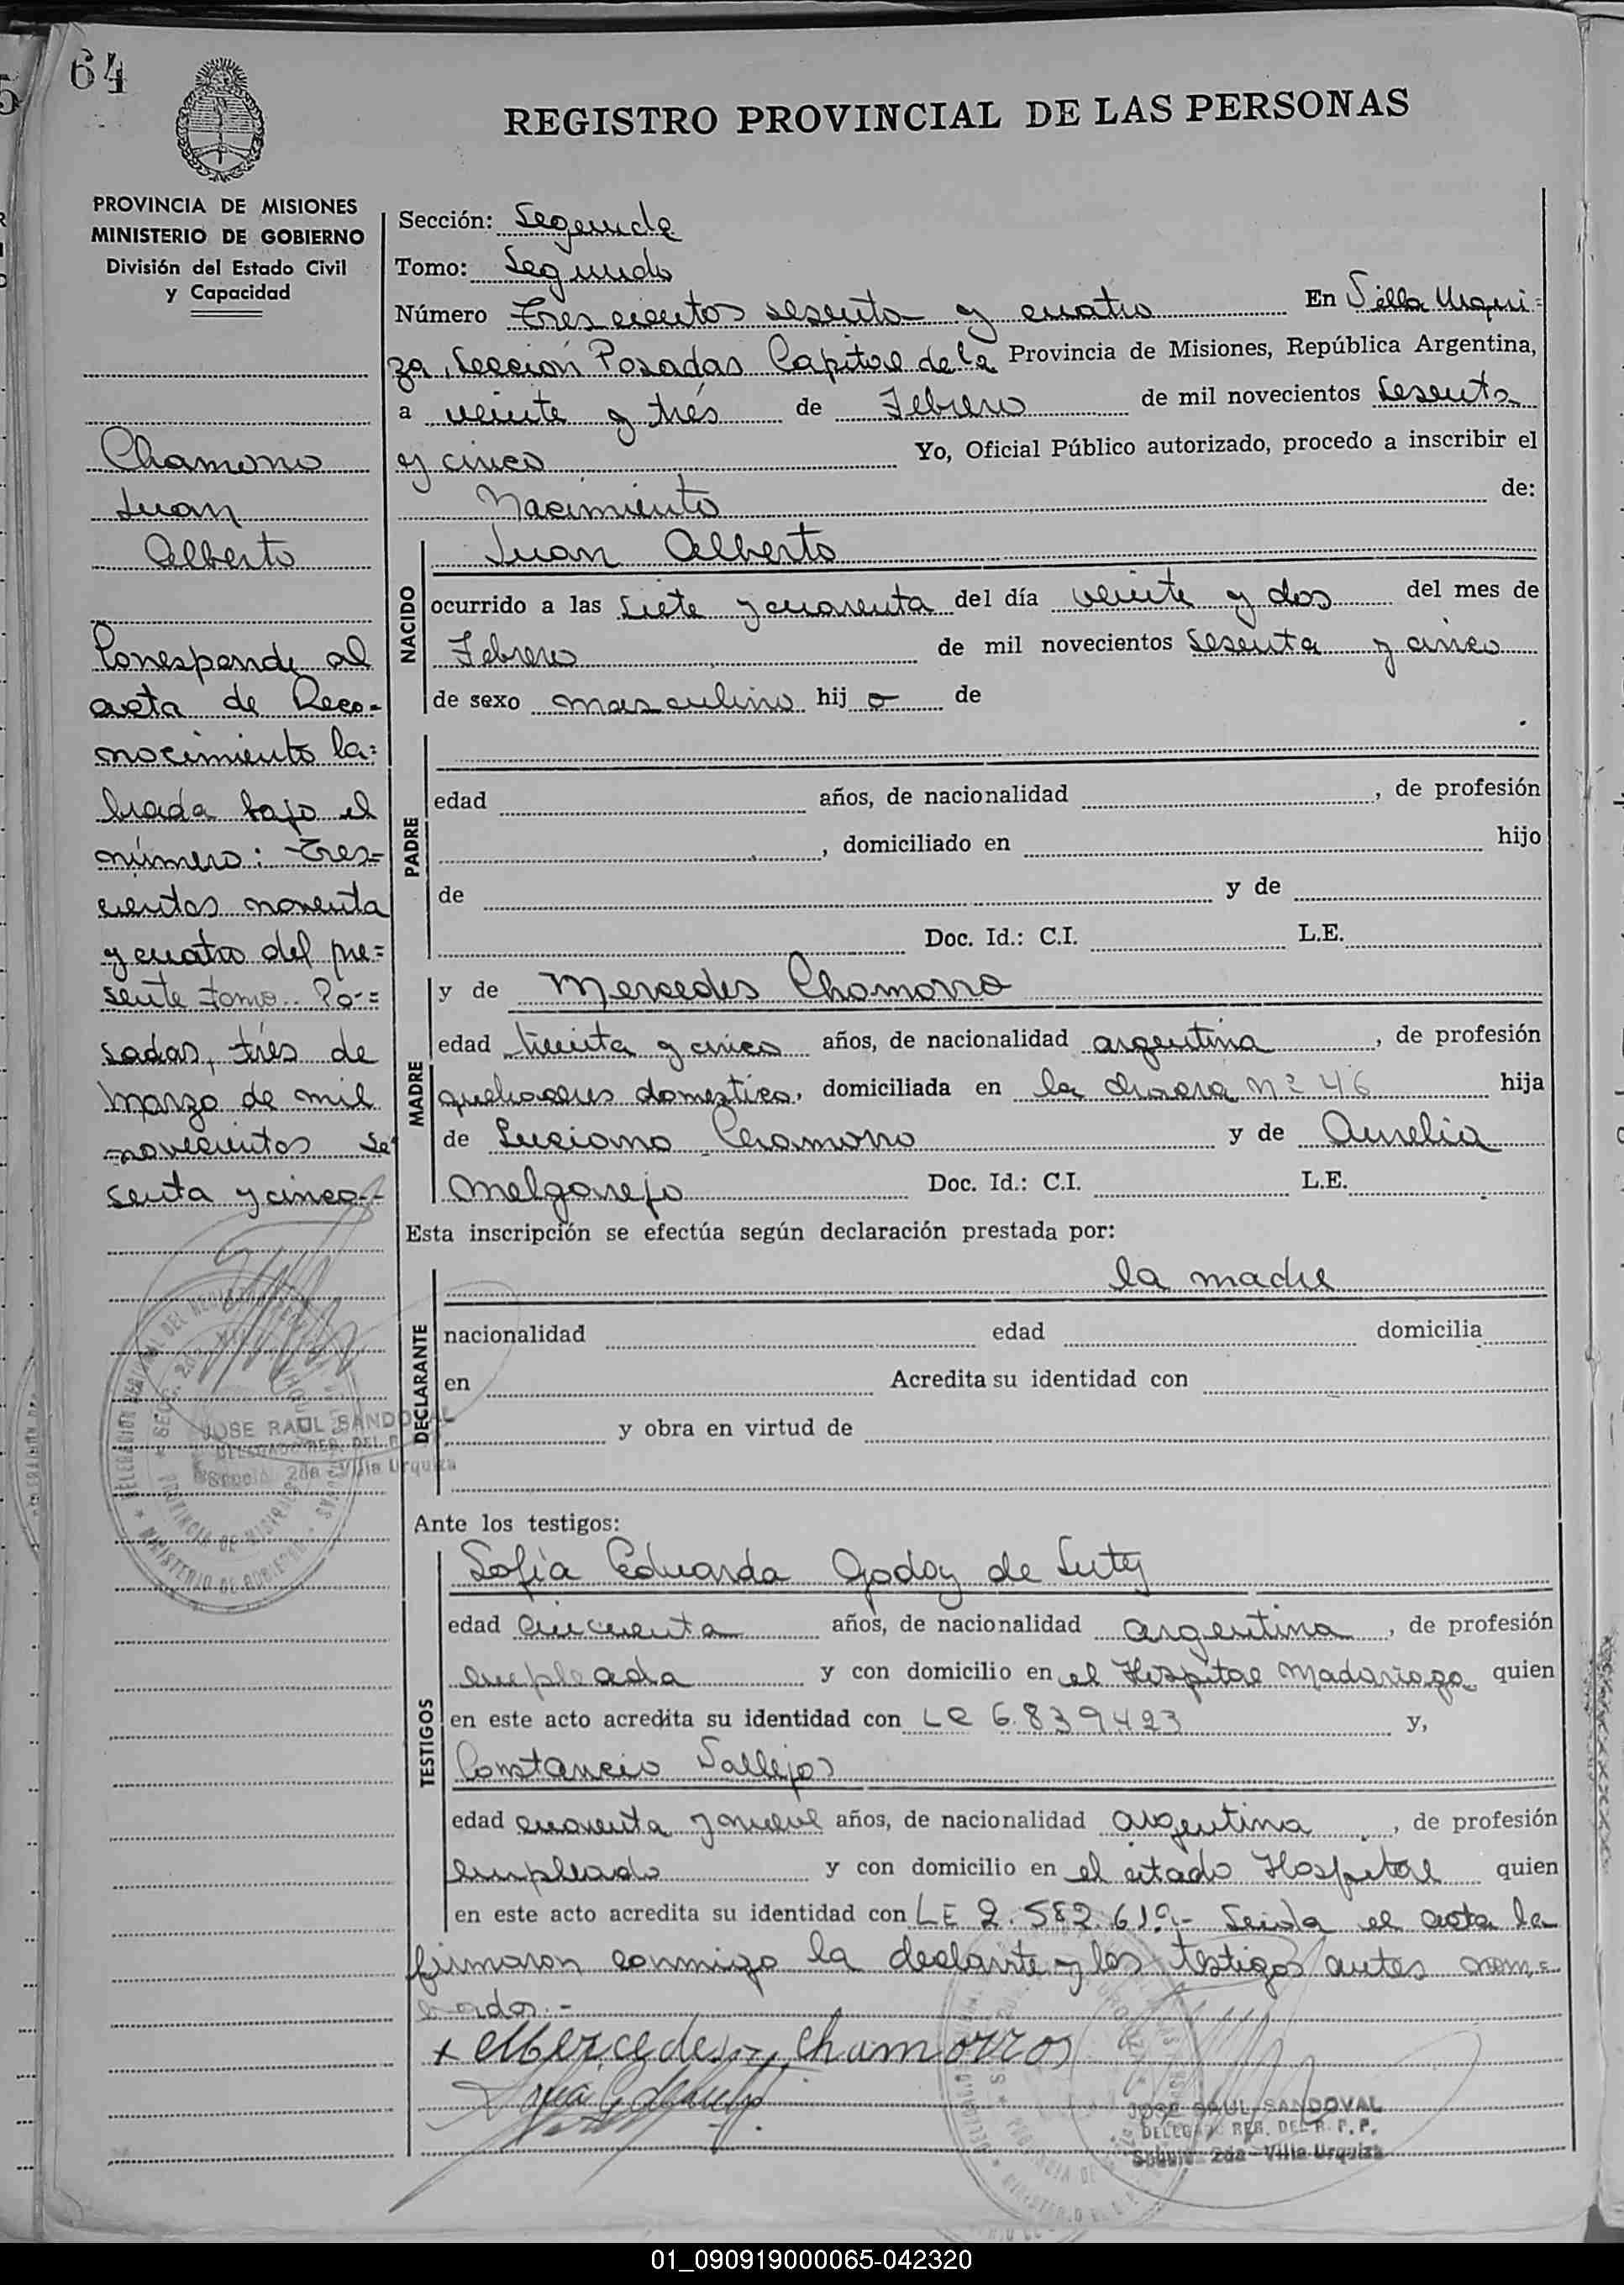 64
REGISTRO PROVINCIAL DE LAS PERSONAS
PROVINCIA DE MISIONES
MINISTERIO DE GOBIERNO
División del Estado Civil
y Capacidad
Chamorro
Juan
Alberto
Corresponde al
acta de Reco-
nocimiento la=
brada bajo el
número: Tres=
cientos noventa
y cuatro del pre=
sente tomo. Po-=
sadas, trés de
marzo de mil
novecientos se
senta y cinco.-
JOSE RAUL SANDOVAL
DELEGADO REG. DEL R.
2da - Villa Urquiza
Sección: Segunda
Tomo: Segundo
Número Tres cientos sesenta y cuatro En Villa Urqui=
za, Sección Posadas Capital de la Provincia de Misiones, República Argentina,
a veinte y trés de Febrero de mil novecientos sesenta
y cinco Yo, Oficial Público autorizado, procedo a inscribir el
Nacimiento de:
NACIDO
Juan Alberto
ocurrido a las siete y cuarenta del día veinte y dos del mes de
Febrero de mil novecientos sesenta y cinco
de sexo masculino hij o de
PADRE
edad años, de nacionalidad , de profesión
, domiciliado en hijo
de y de
Doc. Id.: C.I. L.E.
MADRE
y de Mercedes Chamorro
edad treinta y cinco años, de nacionalidad argentina , de profesión
quehaceres domestica, domiciliada en la chacra Nº 46 hija
de Luciano Chamorro y de Aurelia
Melgarejo Doc. Id.: C.I. L.E.
Esta inscripción se efectúa según declaración prestada por:
DECLARANTE
la madre
nacionalidad edad domicilia
en Acredita su identidad con
y obra en virtud de
Ante los testigos:
TESTIGOS
Sofia Eduarda Godoy de
edad cincuenta años, de nacionalidad argentina , de profesión
empleada y con domicilio en el Hospital Madariaga quien
en este acto acredita su identidad con LC 6.839423 y,
Constancio Vallejos
edad cuarenta y nueve años, de nacionalidad argentina , de profesión
empleado y con domicilio en el citado Hospital quien
en este acto acredita su identidad con LE 2.582.619.- Leida el acta la
firmaron conmigo la declarante y los testigos antes nom=
brados.-
x Mercedes chamorros
JOSE RAUL SANDOVAL
DELEGADO REG. DEL R. P. P.
2da - Villa Urquiza
01_090919000065-042320